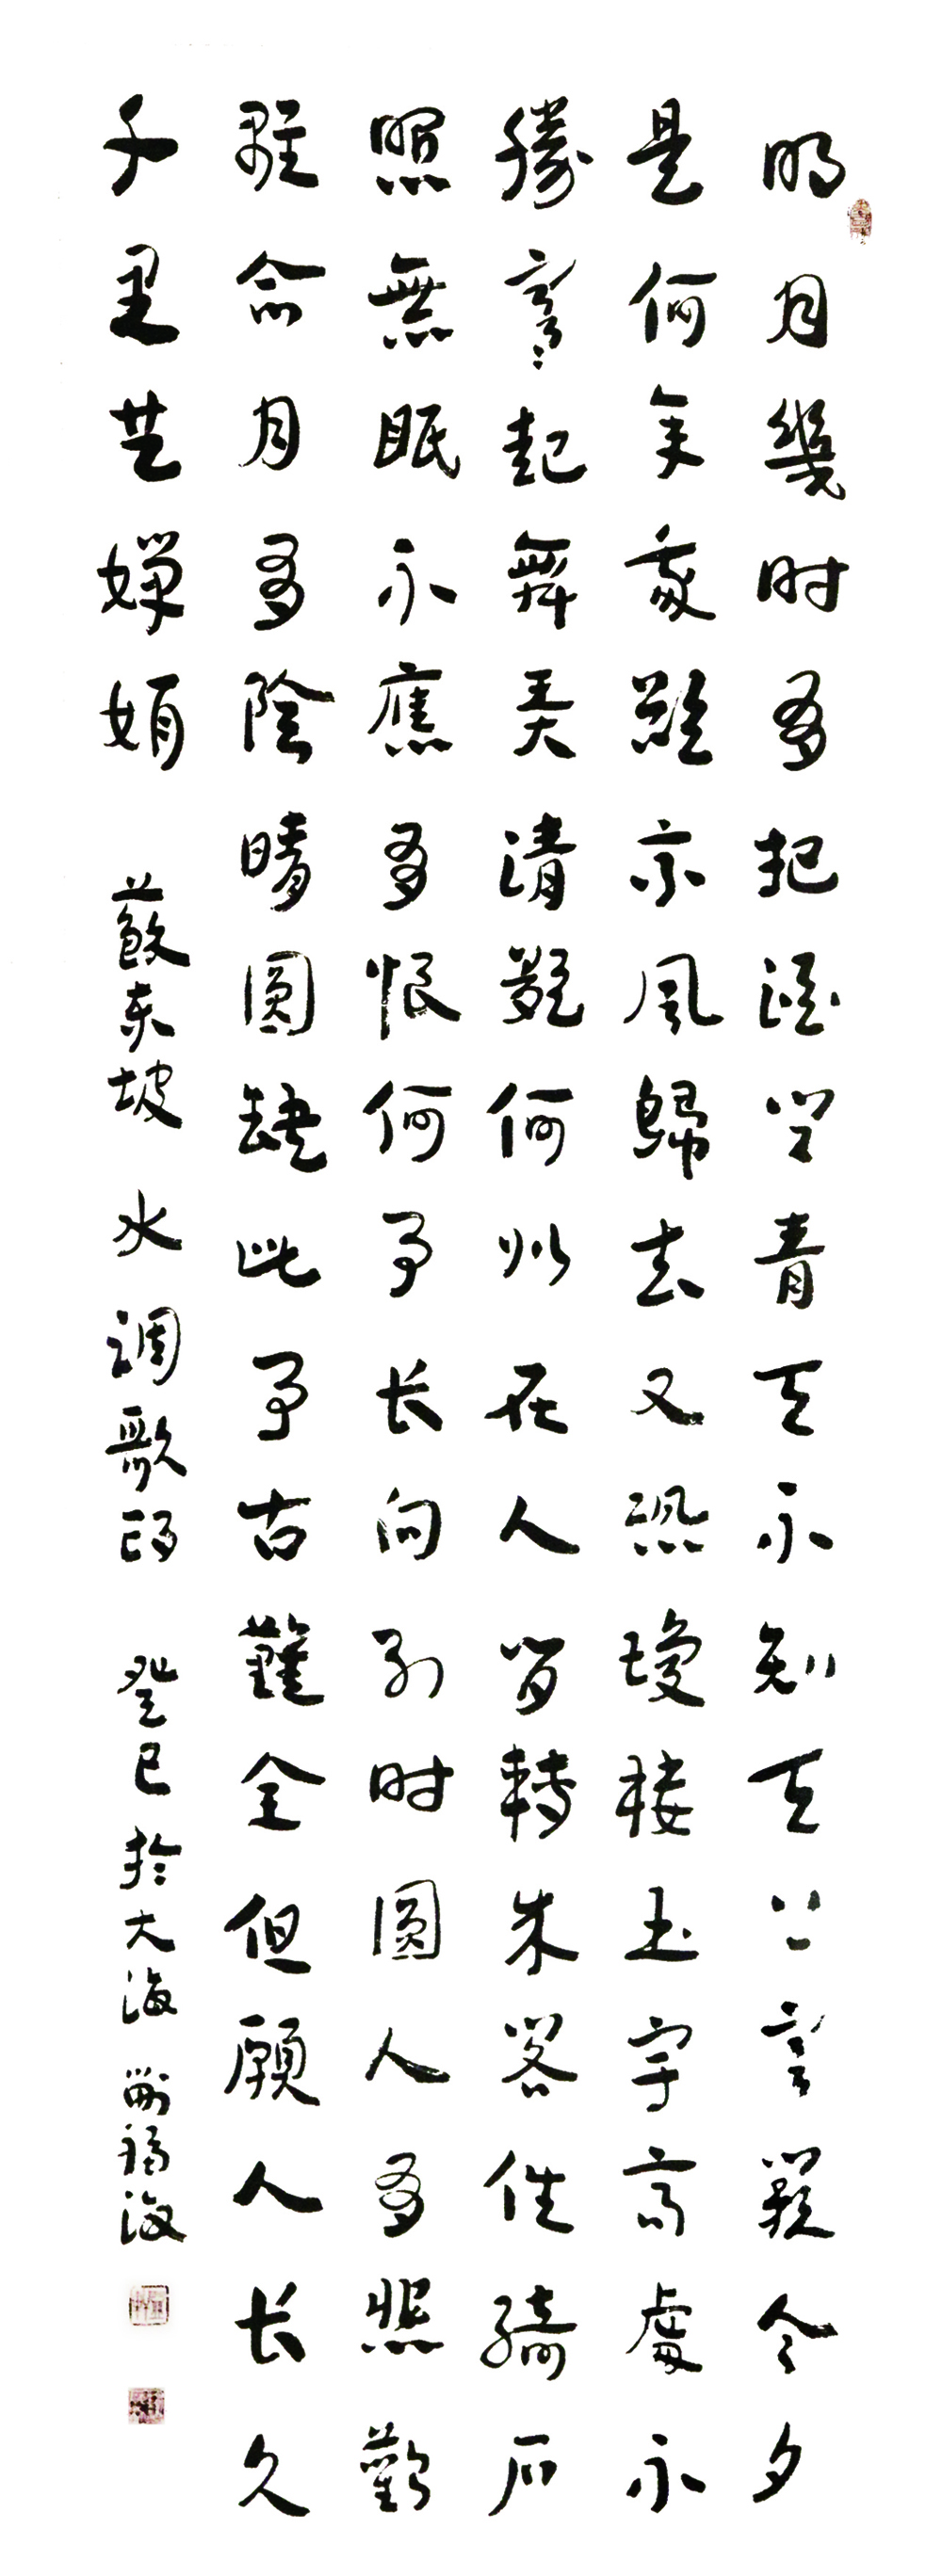 明月幾时有把酒问青天不知天上宫阙今夕
是何年我欲乘風歸去又恐瓊楼玉宇高處不
勝寒起舞弄清影何似在人间轉朱阁低綺户
照無眠不應有恨何事长向别时圓人有悲歡
離合月有陰晴圓缺此事古難全但願人长久
千里共嬋娟 蘇東坡 水調歌頭 癸巳於大海 劉福海